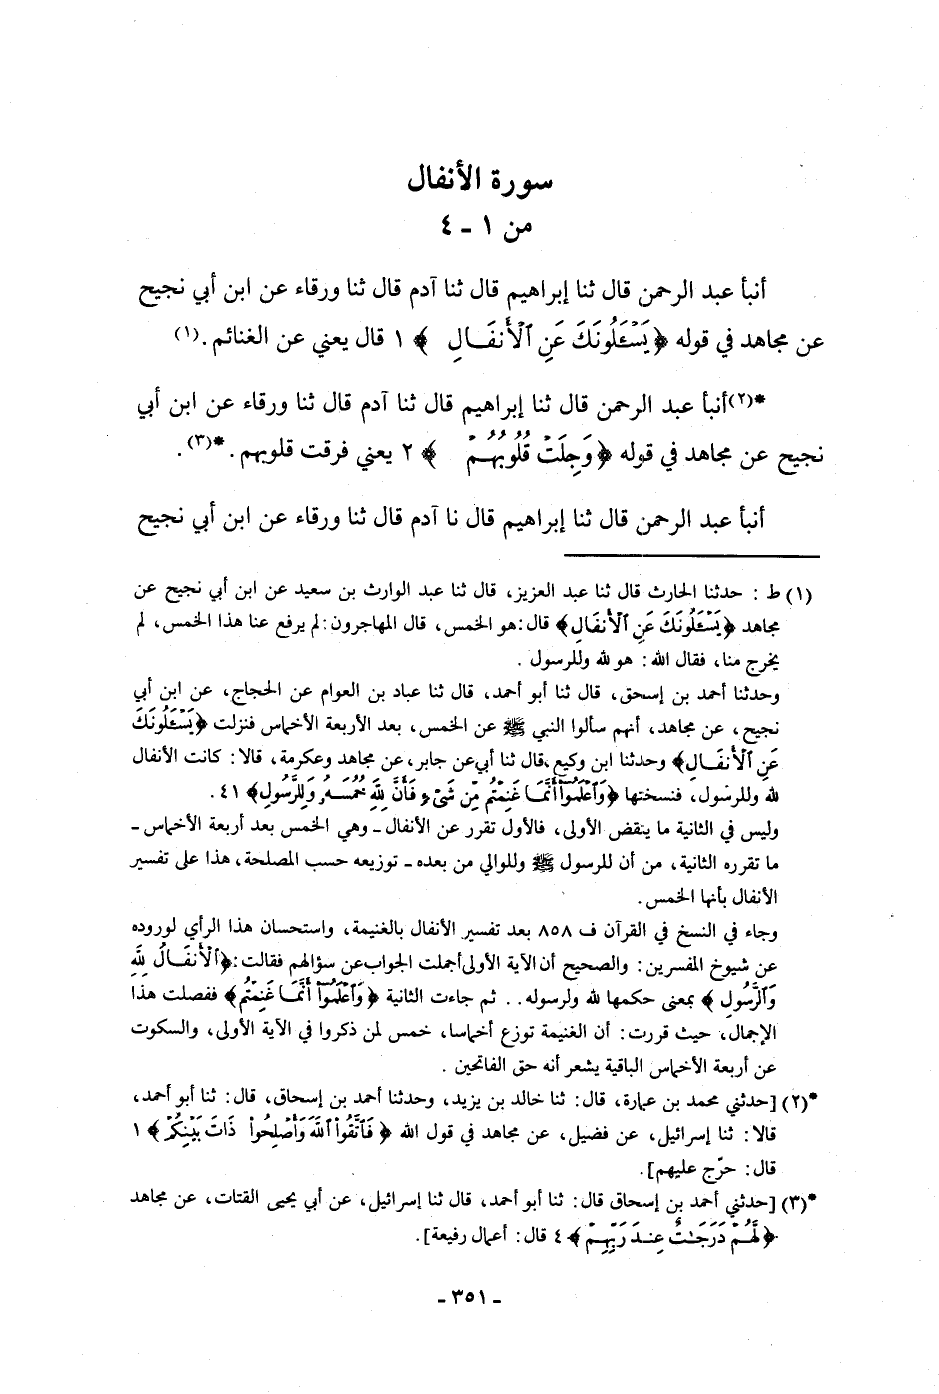 سورة الأنفال
من ١ - ٤
أنبأ عبد الرحمن قال ثنا إبراهيم قال ثنا آدم قال ثنا ورقاء عن ابن أبي نجيح
عن مجاهد في قوله ﴿يَسْـَٔلُونَكَ عَنِ ٱلْأَنفَالِ﴾ ١ قال يعني عن الغنائم.(١)
*(٢)أنبأ عبد الرحمن قال ثنا إبراهيم قال ثنا آدم قال ثنا ورقاء عن ابن أبي
نجيح عن مجاهد في قوله ﴿وَجِلَتْ قُلُوبُهُمْ﴾ ٢ يعني فرقت قلوبهم.*(٣).
أنبأ عبد الرحمن قال ثنا إبراهيم قال نا آدم قال ثنا ورقاء عن ابن أبي نجيح
(١) ط : حدثنا الحارث قال ثنا عبد العزيز، قال ثنا عبد الوارث بن سعيد عن ابن أبي نجيح عن
مجاهد ﴿يَسْـَٔلُونَكَ عَنِ ٱلْأَنفَالِ﴾ قال:هو الخمس، قال المهاجرون:لم يرفع عنا هذا الخمس، لم
يخرج منا، فقال الله: هو لله وللرسول .
وحدثنا أحمد بن إسحق، قال ثنا أبو أحمد، قال ثنا عباد بن العوام عن الحجاج، عن ابن أبي
نجيح، عن مجاهد، أنهم سألوا النبي ﷺ عن الخمس، بعد الأربعة الأخماس فنزلت ﴿يَسْـَٔلُونَكَ
عَنِ ٱلْأَنفَالِ﴾ وحدثنا ابن وكيع،قال ثنا أبي عن جابر، عن مجاهد وعكرمة، قالا: كانت الأنفال
لله وللرسول، فنسختها ﴿وَٱعْلَمُوٓا۟ أَنَّمَا غَنِمْتُم مِّن شَىْءٍ فَأَنَّ لِلَّهِ خُمُسَهُۥ وَلِلرَّسُولِ﴾ ٤١.
وليس في الثانية ما ينقض الأولى، فالأول تقرر عن الأنفال ـ وهي الخمس بعد أربعة الأخماس ـ
ما تقرره الثانية، من أن للرسول ﷺ وللوالي من بعده ـ توزيعه حسب المصلحة، هذا على تفسير
الأنفال بأنها الخمس.
وجاء في النسخ في القرآن ف ٨٥٨ بعد تفسير الأنفال بالغنيمة، واستحسان هذا الرأي لوروده
عن شيوخ المفسرين: والصحيح أن الآية الأولى أجملت الجواب عن سؤالهم فقالت:﴿ٱلْأَنفَالُ لِلَّهِ
وَٱلرَّسُولِ﴾ بمعنى حكمها لله ولرسوله.. ثم جاءت الثانية ﴿وَٱعْلَمُوٓا۟ أَنَّمَا غَنِمْتُم﴾ ففصلت هذا
الإجمال، حيث قررت: أن الغنيمة توزع أخماسا، خمس لمن ذكروا في الآية الأولى، والسكوت
عن أربعة الأخماس الباقية يشعر أنه حق الفاتحين .
*(٢) [حدثني محمد بن عمارة، قال: ثنا خالد بن يزيد، وحدثنا أحمد بن إسحاق، قال: ثنا أبو أحمد،
قالا: ثنا إسرائيل، عن فضيل، عن مجاهد في قول الله ﴿فَٱتَّقُوا۟ ٱللَّهَ وَأَصْلِحُوا۟ ذَاتَ بَيْنِكُمْ﴾ ١
قال: حرّج عليهم].
*(٣) [حدثني أحمد بن إسحاق قال: ثنا أبو أحمد، قال ثنا إسرائيل، عن أبي يحيى القتات، عن مجاهد
﴿لَّهُمْ دَرَجَٰتٌ عِندَ رَبِّهِمْ﴾ ٤ قال: أعمال رفيعة].
- ٣٥١ -